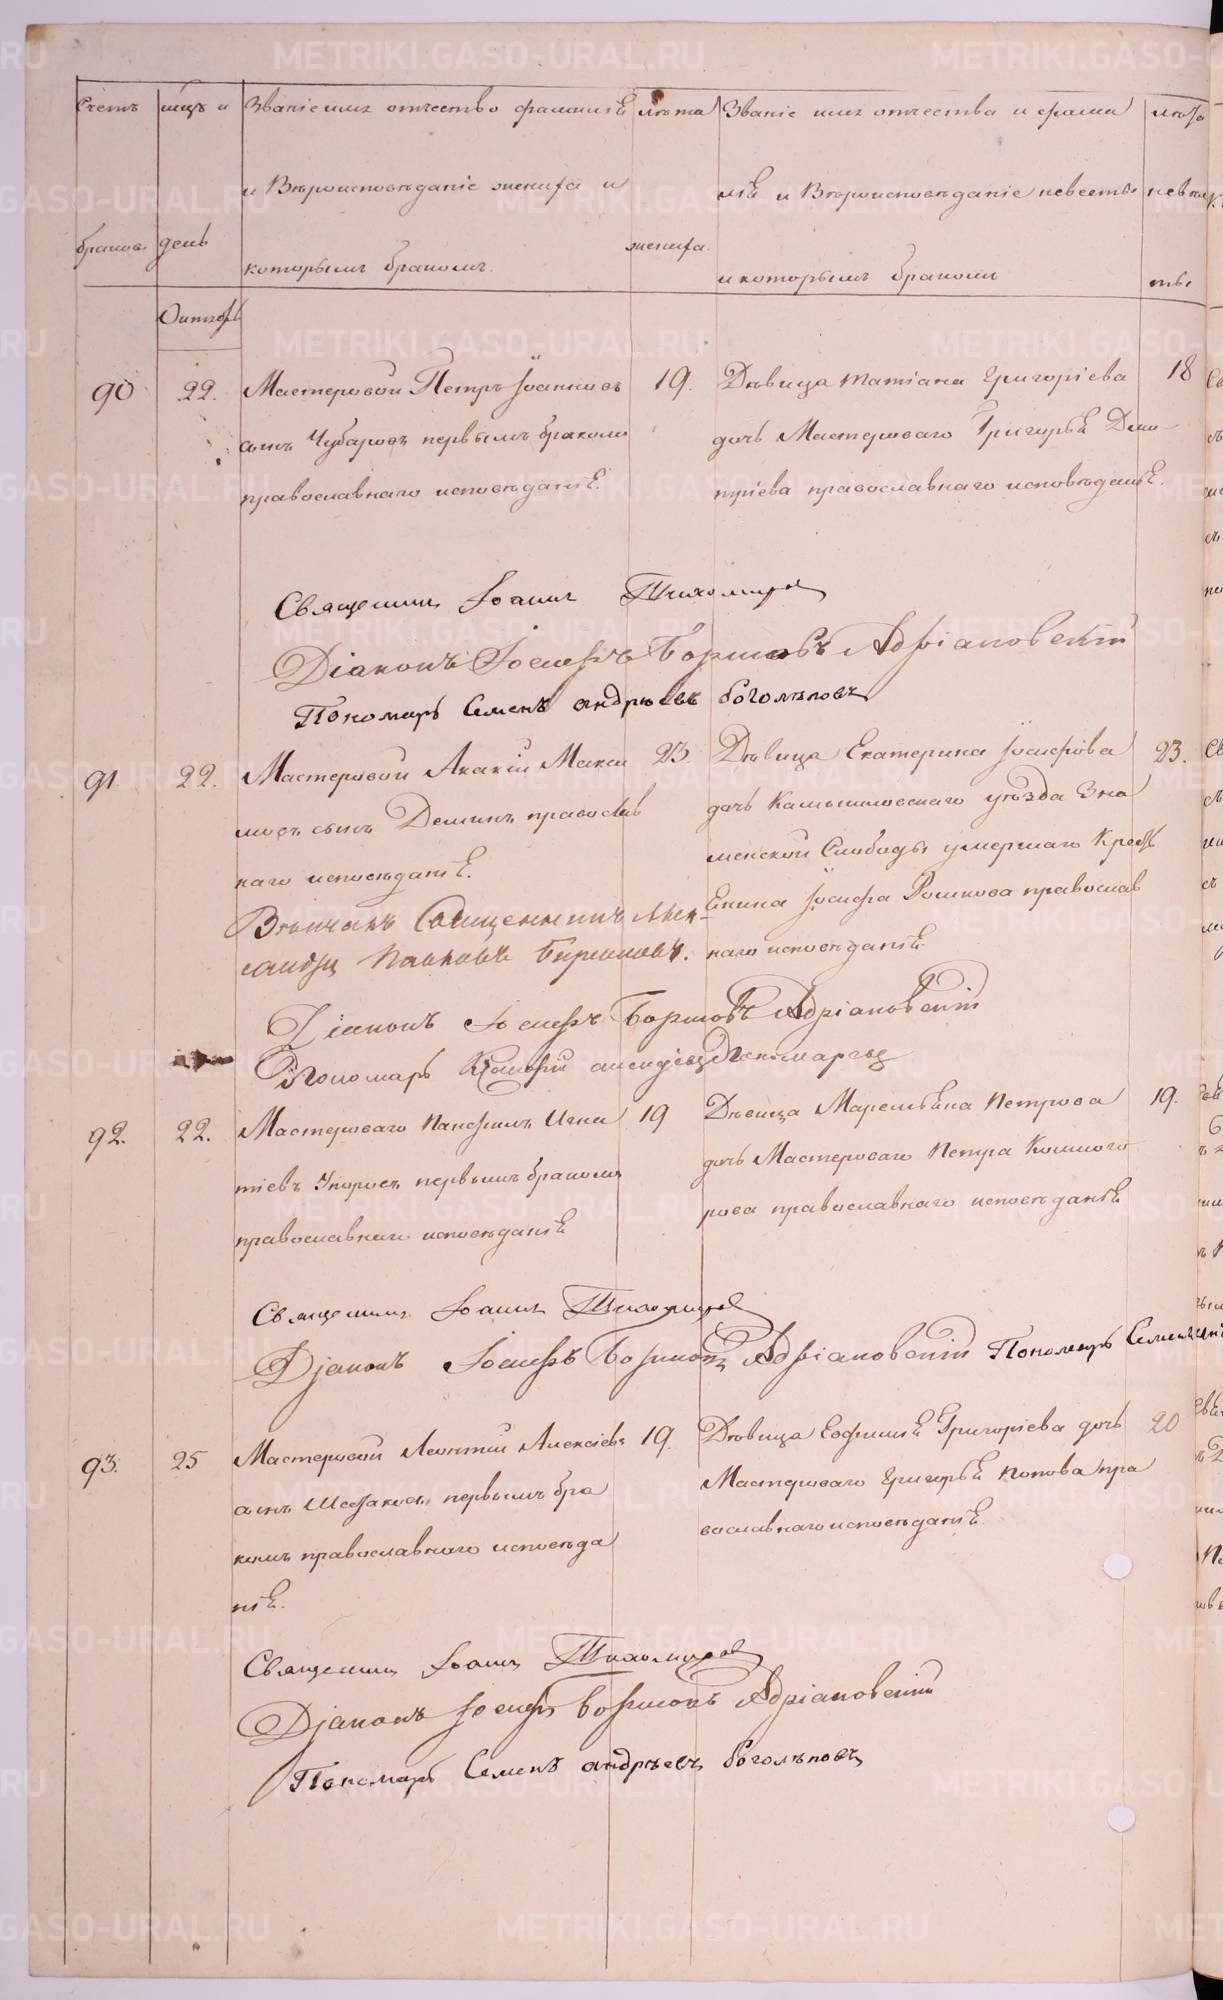 Счетъ
браковъ
мцъ и
день
Званіе имя отчество фамилія
и Вѣроисповѣданіе жениха и
которымъ бракомъ.
лѣта
жениха.
Званіе имя отчества и фами
лія и Вѣроисповѣданіе невесты
и которымъ бракомъ
лѣта
невѣс
ты
Октябрь
90
22.
Мастеровой Петръ Іоанновъ
сынъ Чубаровъ первымъ бракомъ
православнаго исповѣданія.
19.
Дѣвица татіана Григоріева
дочь Мастероваго Григорья Дми-
тріева православнаго исповѣданія.
18
Священникъ Іоаннъ Тихомировъ
Діаконъ Іосифъ Боршовъ Адріановскій
Пономарь Семенъ андрѣевъ боголѣповъ
91.
22.
Мастеровой Акакій Макси
мовъ сынъ Деминъ православ
наго исповѣданія.
23.
Дѣвица Екатерина Іосифова
дочь Камышловскаго уѣзда Зна
менской Слободы умершаго Кресть
Енина Іосифа православ
наго исповѣданія
23.
Вѣнчалъ Священникъ Алек-
сандръ
Діаконъ Іосифъ Боршовъ Адріановскій
Пономарь Пономаревъ
92.
22.
Мастероваго Панфилъ Игна
тіевъ Упоровъ первымъ бракомъ
православнаго исповѣданія
19
Дѣвица Маремьяна Петрова
дочь Мастероваго Петра Комного
рова православнаго исповѣданія
19.
Священникъ Іоаннъ Тихомировъ
Діаконъ Іосифъ Боршовъ Адріановскій Пономарь Семенъ
93.
25
Мастеровой Леонтій Алексіевъ
сынъ Шестаковъ первымъ бра
комъ православнаго исповѣда
нія.
19.
Дѣвица Евфимія Григоріева дочь
Мастероваго Григорья Попова пра
вославнаго исповѣданія.
20
Священникъ Іоаннъ Тихомировъ
Діаконъ Іосифъ Боршовъ Адріановскій
Пономарь Семенъ андрѣевъ боголѣповъ
METRIKI.GASO-URAL.RU